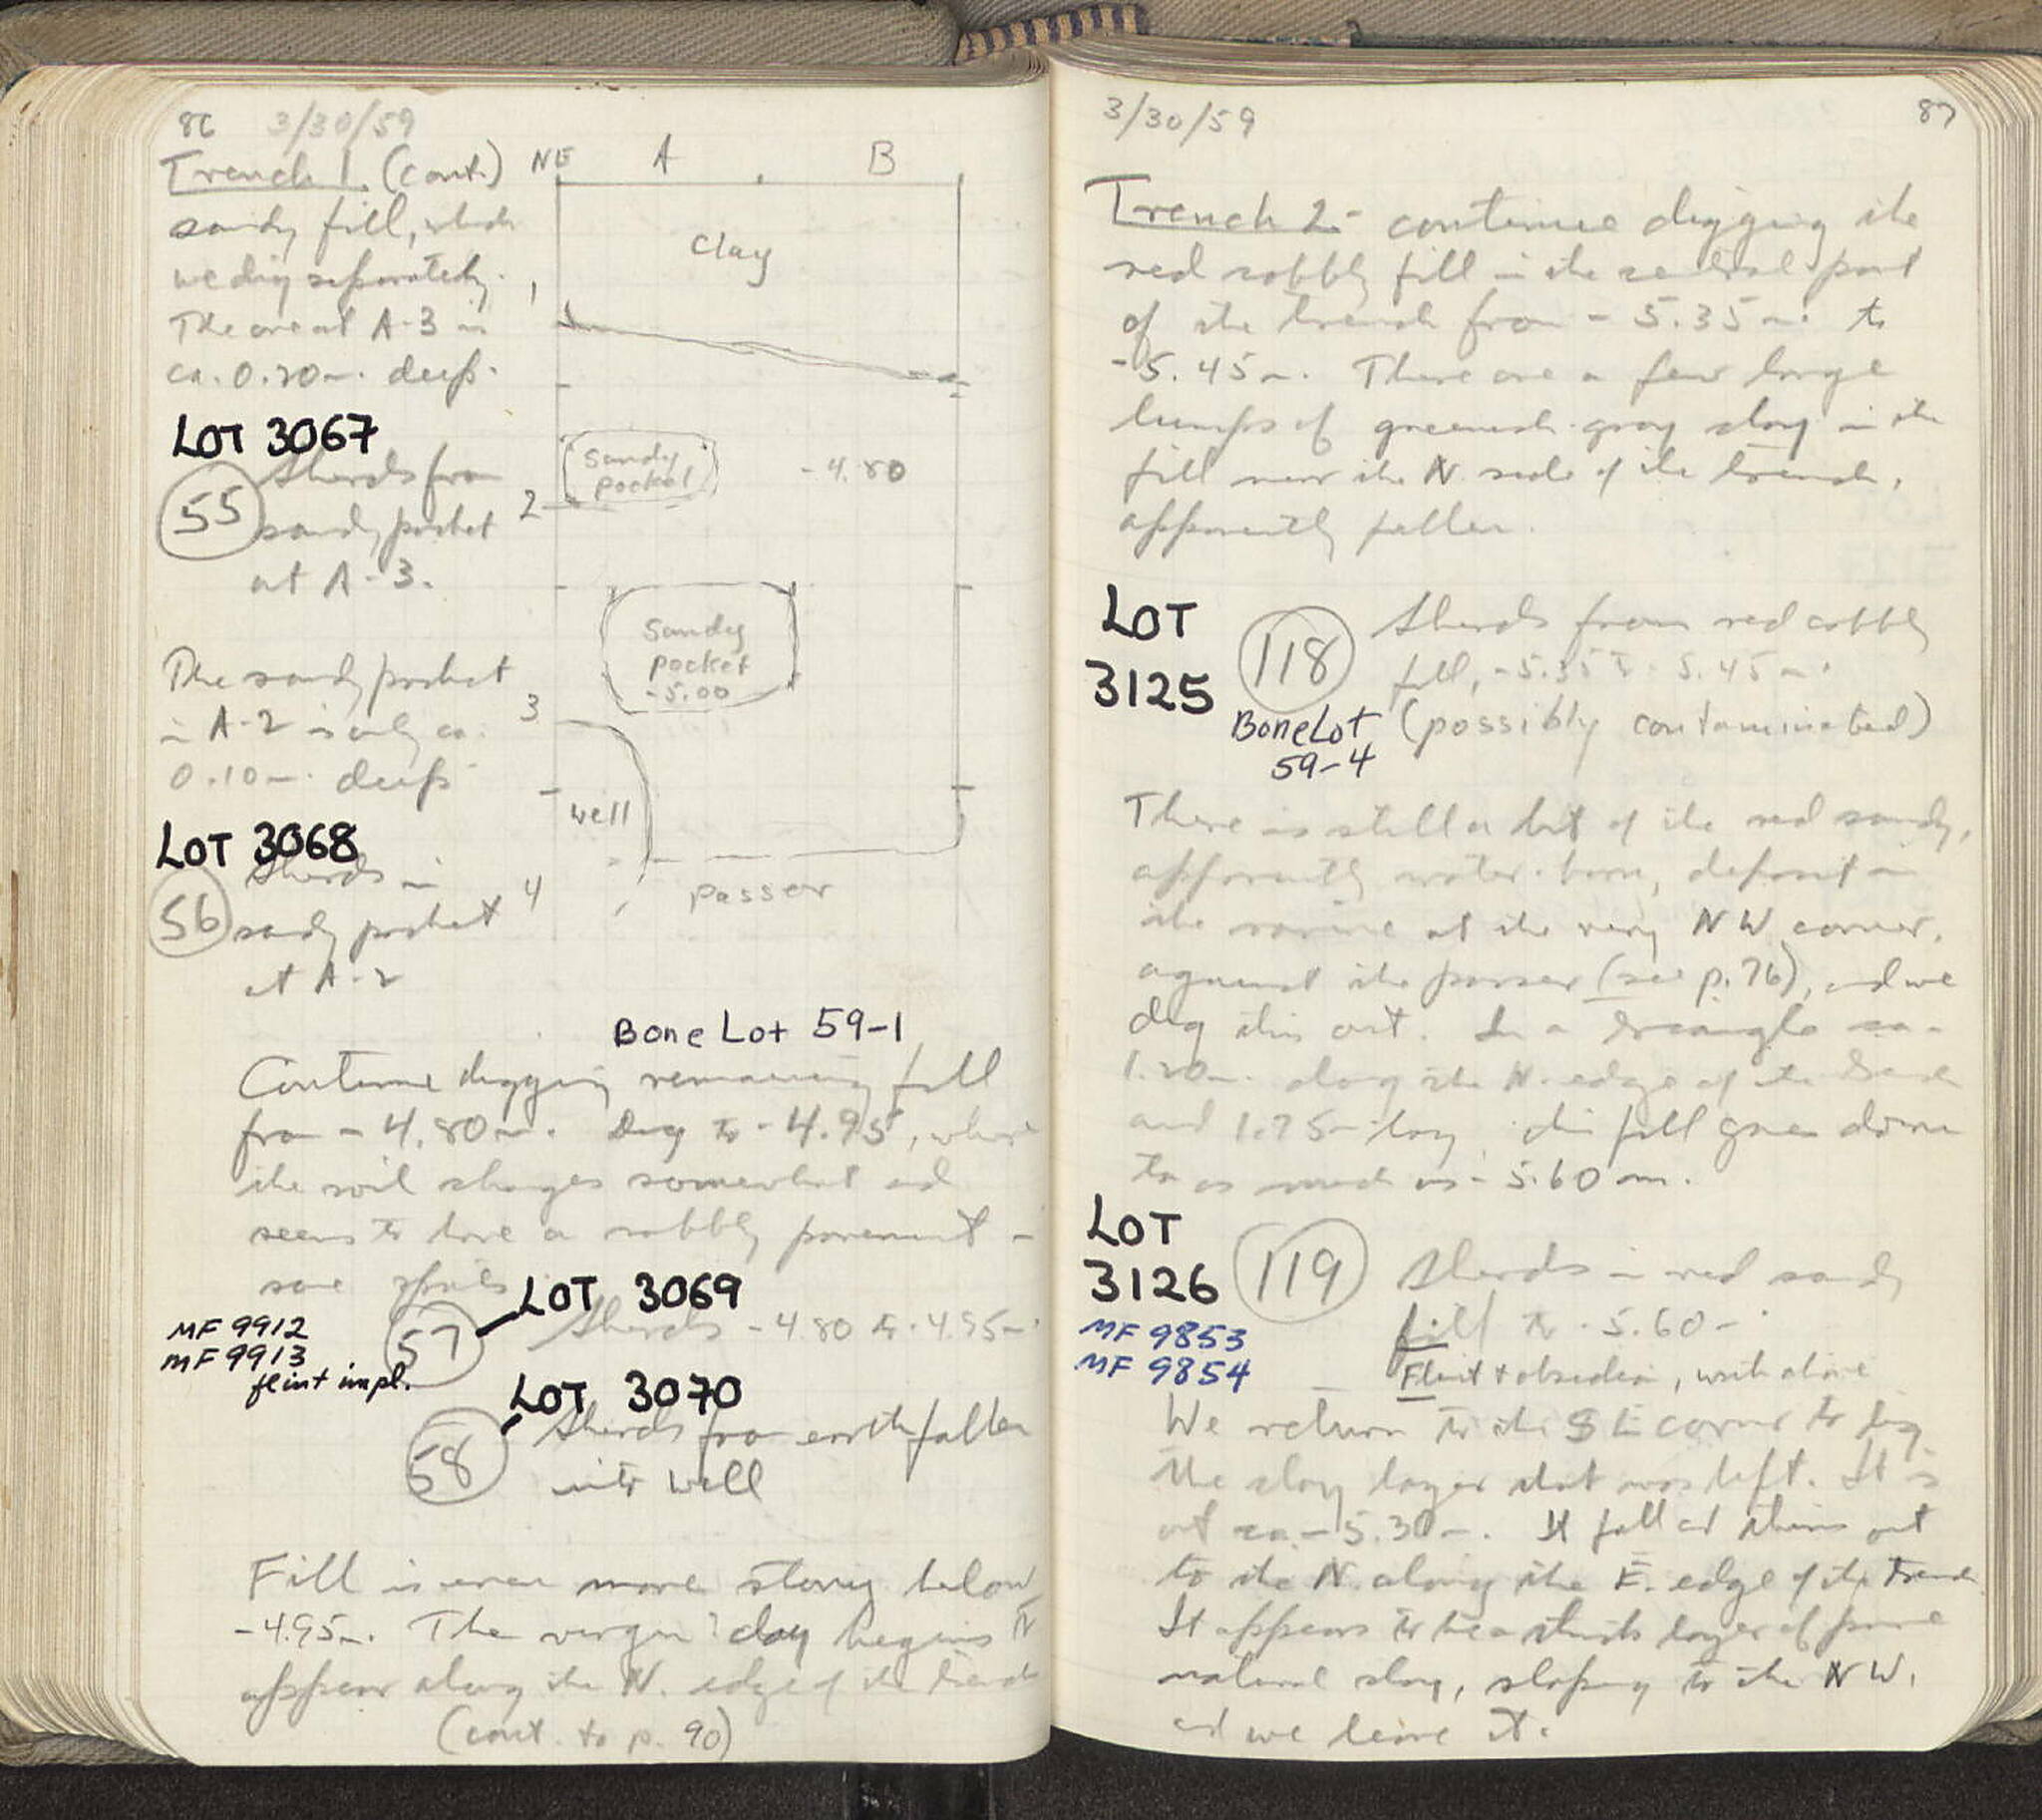 86 3/30/59
Trench 1. (cont.)
sandy fill, which
we dig separately.
The one at A-3 is
ca. 0.20m. deep.
LOT 3067
55 Sherds from
sandy pocket
at A-3.
The sandy pocket
in A-2 is only ca.
0.10m. deep
LOT 3068
56 Sherds in
sandy pocket
at A-2
NE A B
Clay
1
Sandy
pocket
-4.80
2
Sandy
pocket
-5.00
3
well
4
passer
Bone Lot 59-1
Continue digging remaining fill
from -4.80m. Dig to -4.95, where
the soil changes somewhat and
seems to have a cobbly pavement -
some
LOT 3069
MF 9912
MF 9913
flint impl.
57 Sherds -4.80 to -4.95m.
LOT 3070
58 Sherds from earth fallen
into well
Fill is even more stoney below
-4.95m. The virgin? clay begins to
appear along the N. edge of the trench
(cont. to p. 90)
3/30/59 87
Trench 2.- continue digging the
red cobbly fill in the central part
of the trench from -5.35m. to
-5.45m. There are a few large
lumps of greenish-gray clay in the
fill near the N. side of the trench,
apparently fallen.
LOT
3125
118 Sherds from red cobbly
fill, -5.35 to -5.45m.
(possibly contaminated)
Bone Lot
59-4
There is still a bit of the red sandy,
apparently water-borne, deposit in
the ravine at the very NW corner,
against the passer (see p. 76), and we
dig this out. In a triangle ca.
1.20m. along the N. edge of the trench
and 1.75m long, this fill goes down
to as much as -5.60m.
LOT
3126
119 Sherds in red sandy
fill to -5.60m.
MF 9853
MF 9854
Flint + obsidian, with above
We return to the SE corner to dig
the clay layer that was left. It is
at ca. -5.30m. It fell and thins out
to the N. along the E. edge of the trench
It appears to be a thick layer of pure
natural clay, sloping to the NW,
and we leave it.